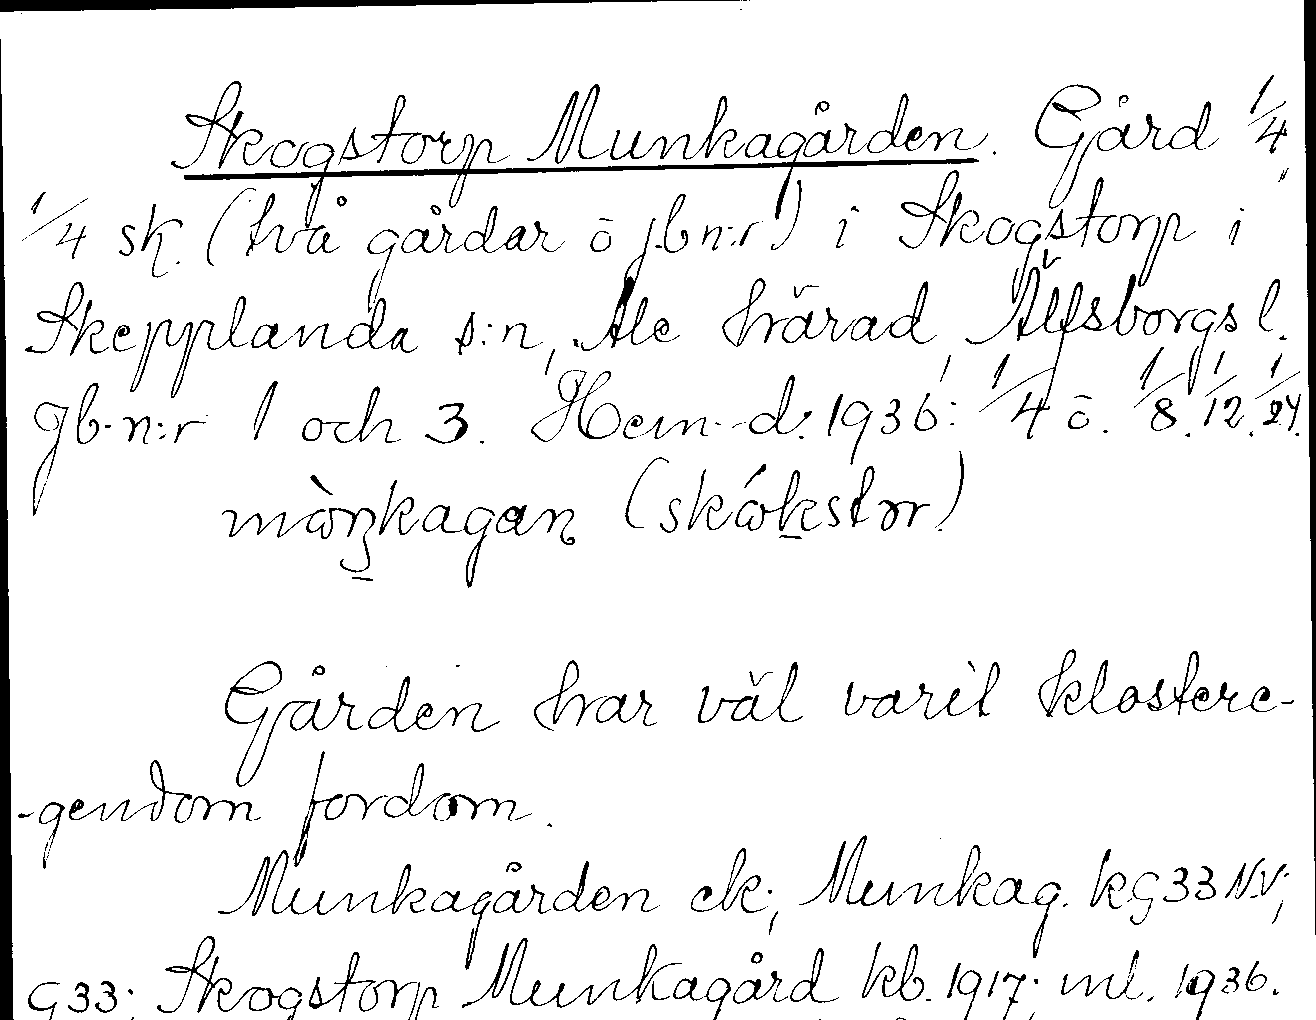 Skogstorp Munkagården. Gård 1/4,
1/4 sk. (två gårdar o jb n:r) i Skogstorp i
Skepplanda s:n, Ale härad, Älfsborgs l.
Jb. n:r 1 och 3. Hem.-d. 1936: 1/4 o. 1/8. 1/12. 1/24.
(skókstor)
Gården har väl varit klostere-
-gendom fordom.
Munkagården ek; Munkag. kG33NV;
G33; Skogstorp Munkagård kb. 1917; ml. 1936.